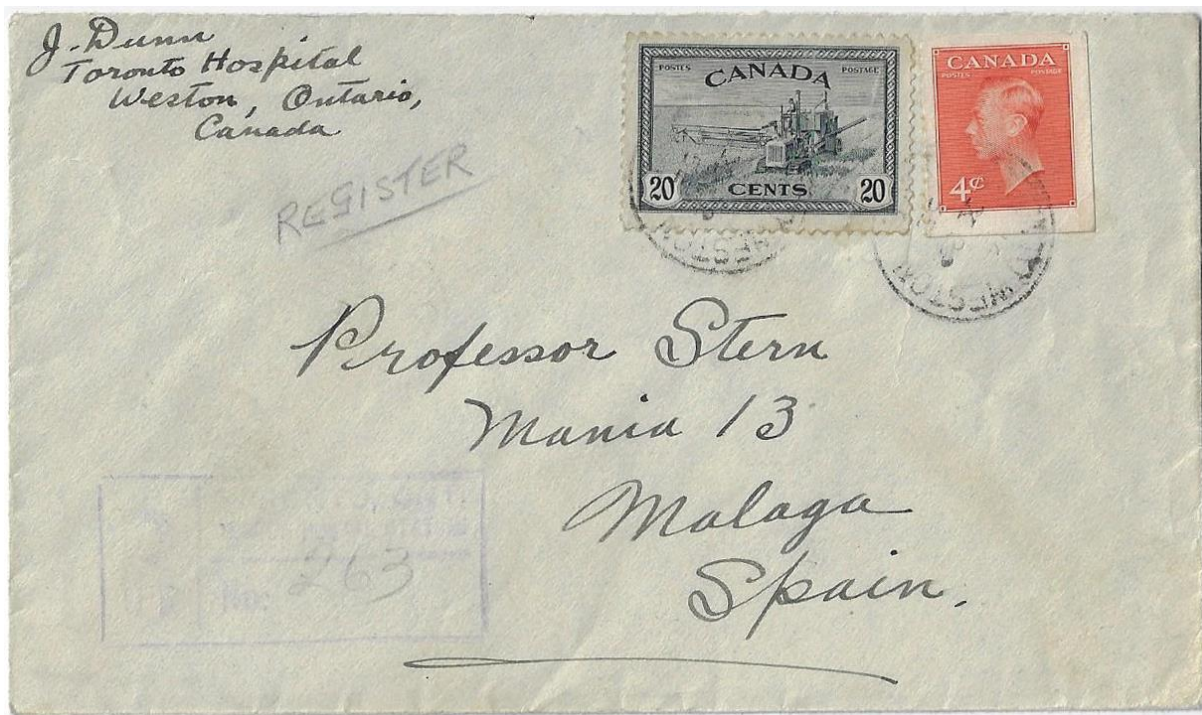 J. Dunn
Toronto Hospital
Weston, Ontario,
Canada
REGISTER
POSTES CANADA POSTAGE
20 CENTS 20
CANADA
POSTES POSTAGE
4¢
WESTON
WESTON
Professor Stern
Mania 13
Malaga
Spain.
No: 263